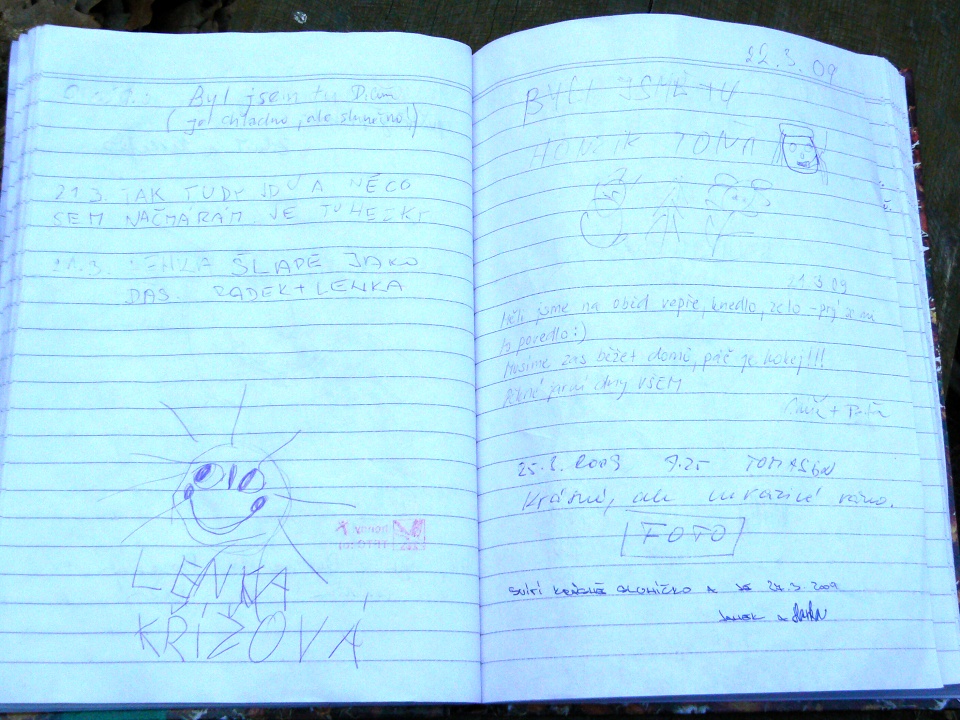 Byl jsem tu
(je chladno, ale slunečno!)
21.3. JAK TUDY JDU A NĚCO
SEM NAČMÁRÁM JE TU HEZKY
21.3. LENKA ŠLAPE JAKO
ĎAS. RADEK + LENKA
LENKA
KŘÍŽOVÁ
22.3.09
BYLI JSME TU
HONZÍK TONA
21.3.09
Měli jsme na oběd vepřo, knedlo, zelo - prý se mi
to povedlo :)
Musíme zas běžet domů, páč je hokej!!!
Pěkné jarní dny VŠEM
25.3. 2009 9.25 TOMÁŠOV
Krásné, ale mrazivé ráno.
FOTO
SVÍTÍ KRÁSNĚ SLUNÍČKO A JE 27.3.2009